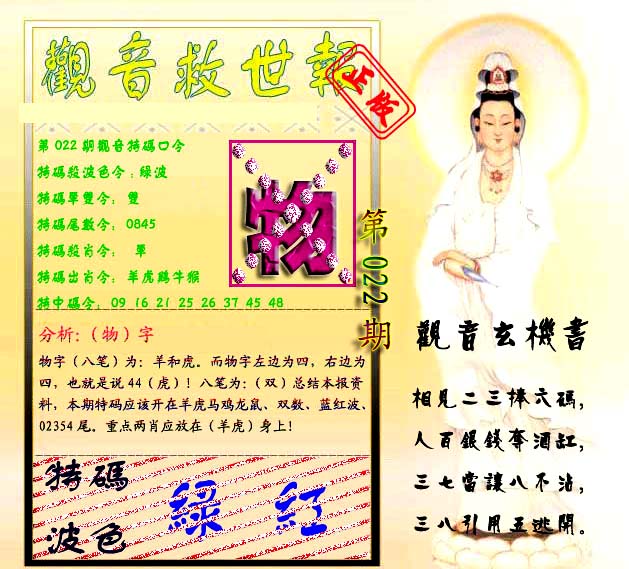 觀音救世報
正版
第022期觀音特碼口令
特碼殺波色令:綠波
特碼單雙令: 雙
特碼尾數令: 0845
特碼殺肖令: 單
特碼出肖令: 羊虎鷄牛猴
特中碼令: 09 16 21 25 26 37 45 48
物
第022期
分析:(物)字
物字(八笔)为:羊和虎。而物字左边为四,右边为
四,也就是说44(虎)!八笔为:(双)总结本报资
料,本期特码应该开在羊虎马鸡龙鼠、双数、蓝红波、
02354尾。重点两肖应放在(羊虎)身上!
特碼
波色
綠 紅
觀音玄機書
相見二三捧六碼,
人百銀錢奪酒缸,
三七當讓八不沾,
三八引用五逃開。